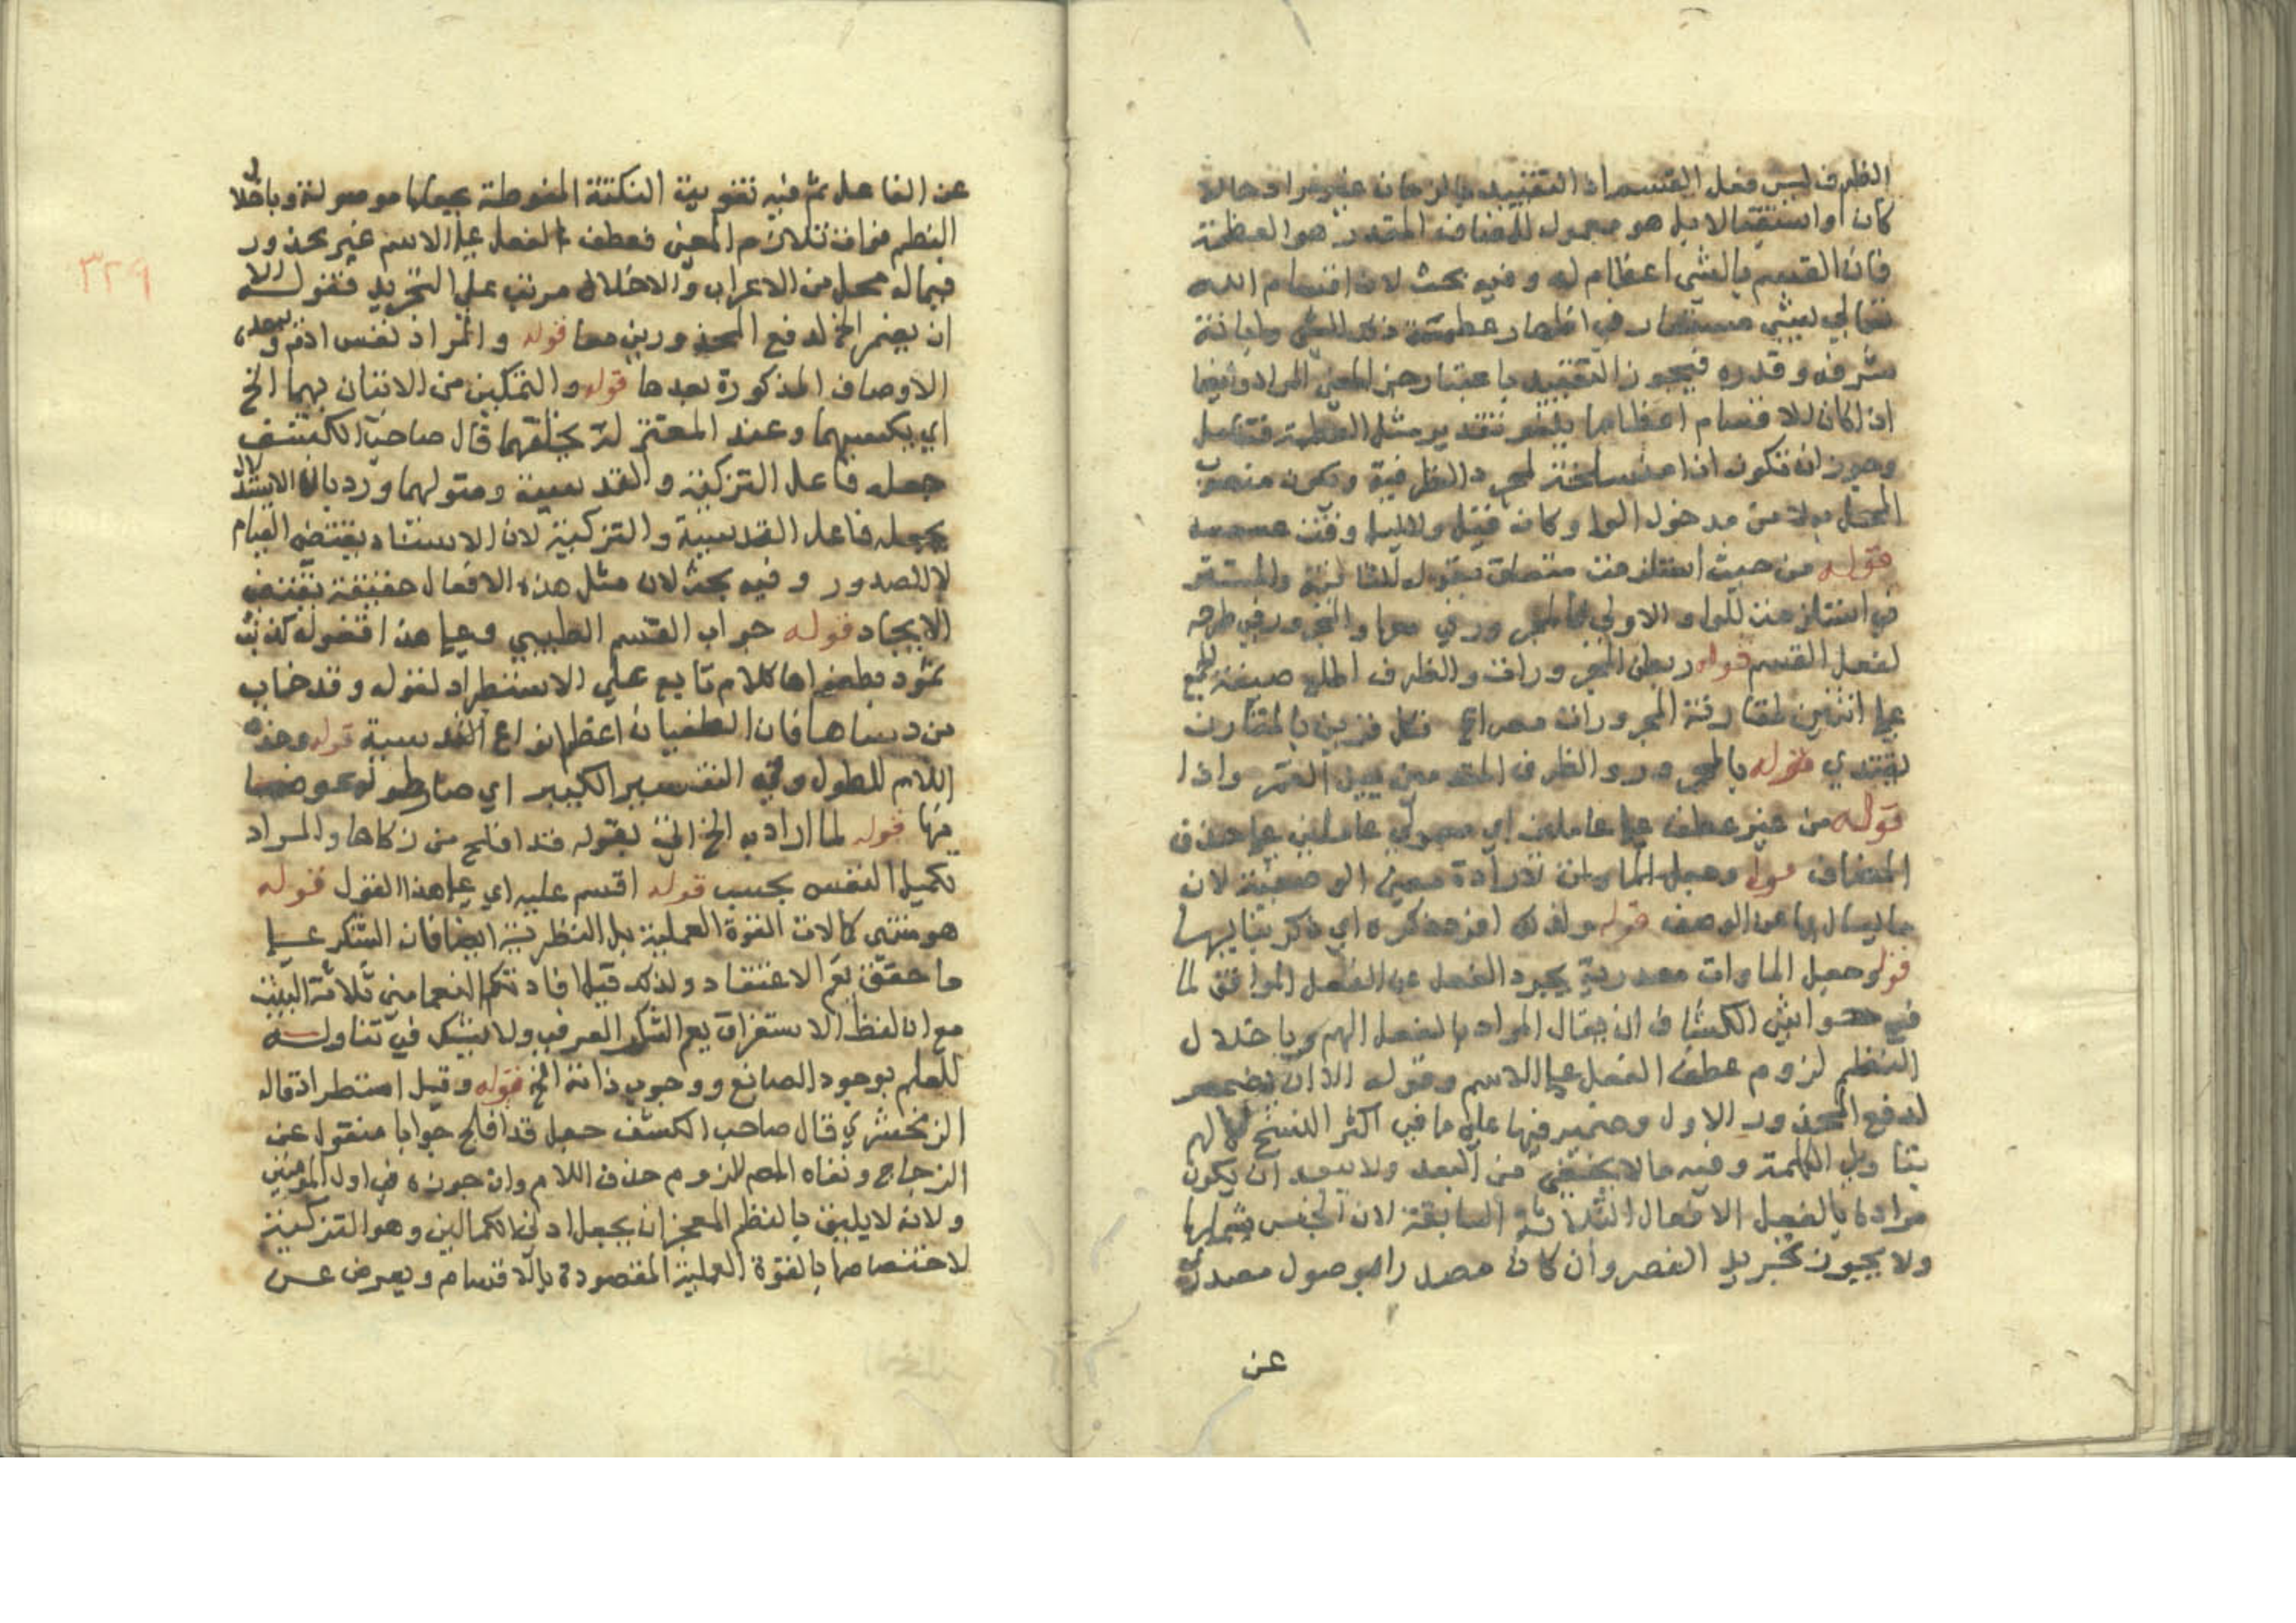 الظرف ليس فعل القسم اذ التقييد بالزمان غير مراد حالا
كان او استقبالا بل هو معمول للمضاف المقدر هو العظمة
فان القسم بالشي اعظام له وفيه بحث لان اقسام الله
تعالي بشي مستعار في اظهار عظمته وابانة
شرفه وقدره فيجوز التقييد باعتبار المعني المراد وايضا
اذا كان الاقسام اعظاما يلغو تقدير مثل العظمة
وجوز ان تكون اذا منسلخة لمجرد الظرفية وتكون منصوب
المحل بدلا من مدخول الواو كانه قيل والليل وقت
قوله من حيث استلزمت متعلق بقوله والمستتر
في استلزمت للواو الاولي
لفعل القسم قوله ربطن المجرورات والظرف صيغة الجمع
علي اثنين لمقارنة المجرورات فكل قرين بالمقارن
يقتدي قوله بالمجرور والظرف المقدمين القمر واذا
قوله من غير عطف علي عاملين اي معمولي عاملين علي حذف
المضاف قوله وجعل الماءات لارادة معني الوصفية لان
ما يسال بها عن الوصف قوله ولذلك افرد ذكره اي ذكر بناييها
قوله وجعل الماءات مصدرية يجرد الفعل عن الفاعل الموافق لما
في حواشي الكشاف ان يقال المراد بالفعل الهم وباختلال
النظم لزوم عطف الفعل علي الاسم وقوله الا ان يضمر
لدفع المحذور الاول وضمير فيها علي ما في اكثر النسخ لالهم
بتاويل الكلمة وفيه ما لا يخفي من البعد ولا يبعد ان يكون
مراده بالفعل الافعال الثلاثة السابقة لان الجنس شملها
ولا يجوز تجريد وان كان مصدرا لموصول
عن
عن الفاعل ثم فيه تفويت النكتة المنوطة بجعلها موصولة وباختلال
النظم فوات تلازم المعني فعطف الفعل علي الاسم غير محذور
فيما له محل من الاعراب والاختلال مرتب علي التجريد فقوله الا
ان يضمر الخ لدفع المحذورين معا قوله والمراد نفس ادم
الاوصاف المذكورة بعدها قوله والتمكين من الاتيان بهما الخ
اي بكسبهما وعند المعتزلة بخلقهما قال صاحب الكشف
جعله فاعل التزكية والتدسية ومتولهما ورد بان الاستدلال
بجعله فاعل التدسية والتزكية لان الاسناد يقتضي القيام
لا الصدور وفيه بحث لان مثل هذه الافعال حقيقة يقتضي
الايجاد قوله جواب القسم الطيبي وعلي هذا فقوله كذبت
ثمود بطغواها كلام تابع علي الاستطراد لقوله وقد خاب
من دساها فان الطغيان اعظم انواع التدسية قوله وحذف
اللام للطول وفي التفسير الكبير اي صار طوله عوضا
منها قوله لما اراد به الخ اي بقوله قد افلح من زكاها والمراد
تكميل النفس بحسب قوله اقسم عليه اي علي هذا القول قوله
هو منتهي كمالات القوة العملية بل النظرية ايضا فان الشكر علي
ما حقق يعم الاعتقاد ولذلك قيل افادتكم النعما مني ثلاثة البيت
مع ان لفظ الاستغراق يعم الشكر العرفي ولا يشك في تناوله
للعلم بوجود الصانع ووجوب ذاته الخ قوله وقيل استطراد قاله
الزمخشري قال صاحب الكشف جعل قد افلح جوابا منقول عن
الزجاج ونفاه المص للزوم حذف اللام وان جوزه في اول المومنين
ولانه لا يليق بالنظم المعجز ان يجعل ادني الكمالين وهو التزكية
لاختصاصها بالقوة العملية المقصودة بالاقسام ويعرض عن
٣٢٩